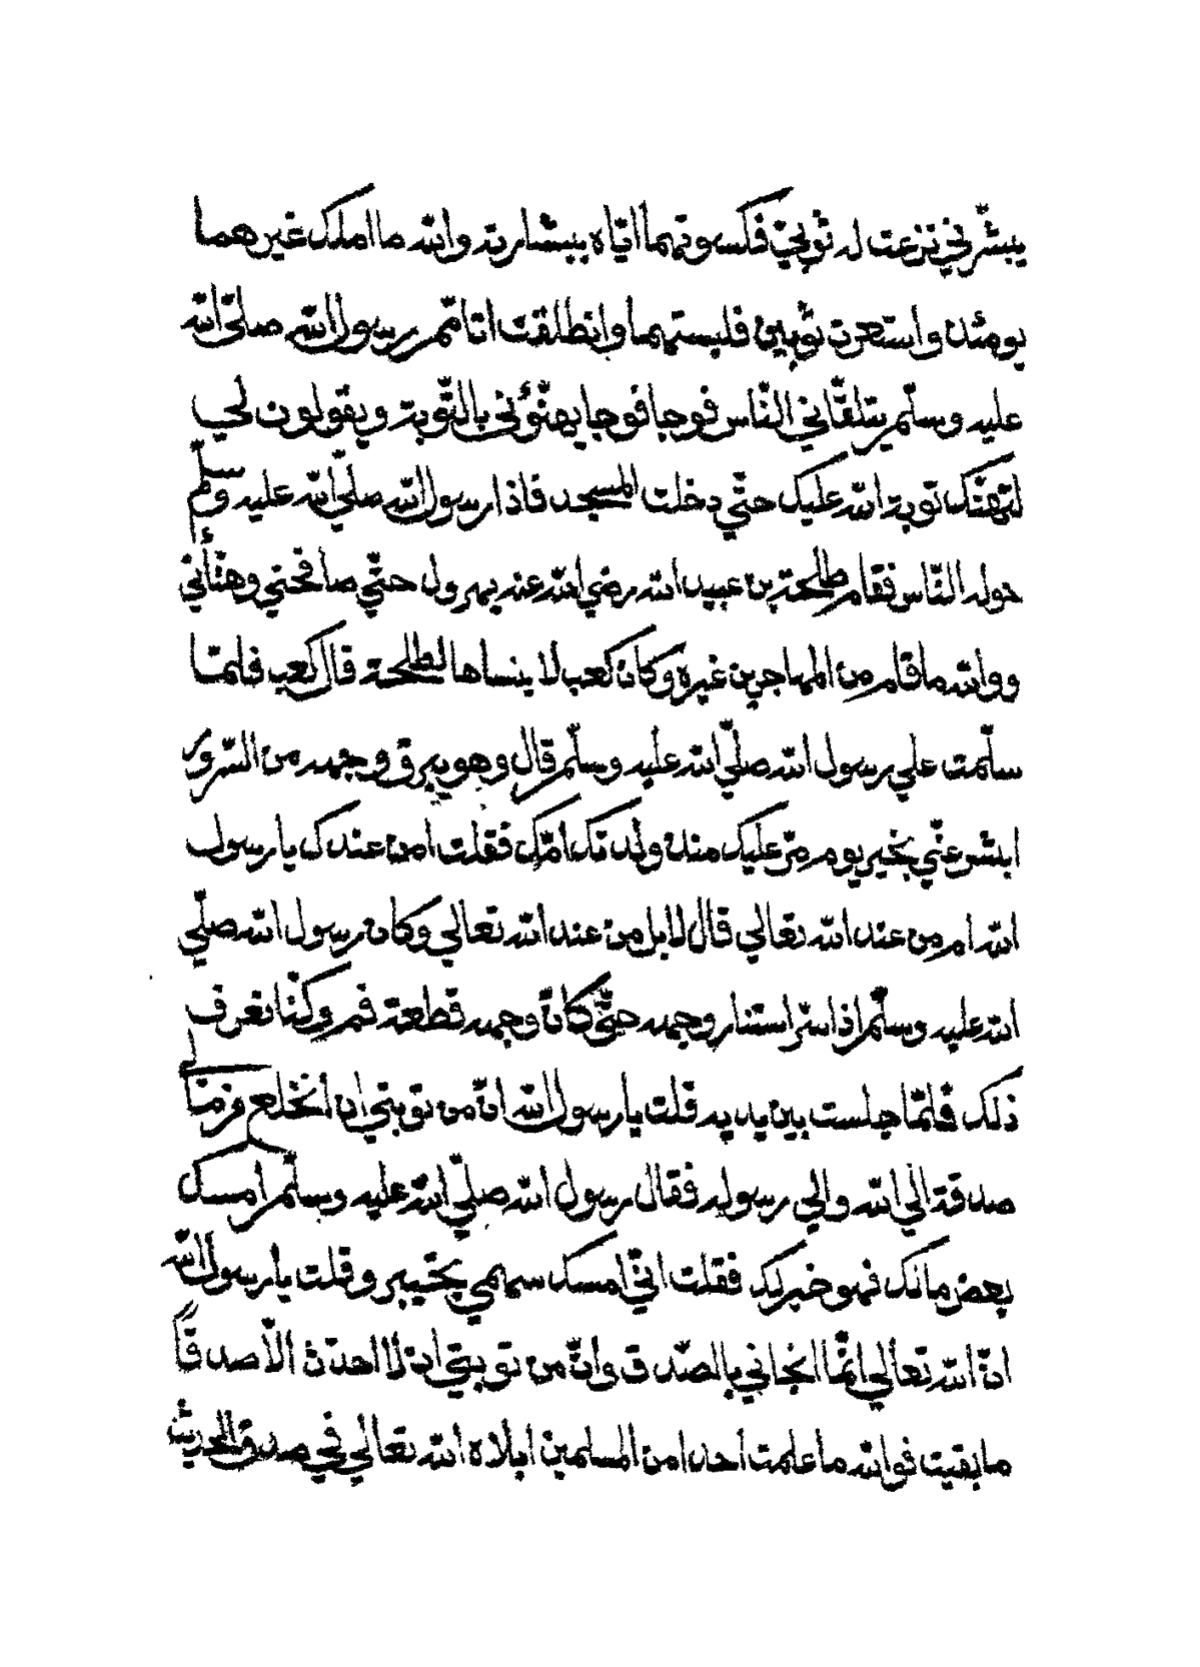 يبشّرني نزعت له ثوبيّ فكسوتهما اتاه ببشارته والله ما املك غيرهما
يومئذ واستعرت ثوبين فلبستهما وانطلقت اتامّم رسول الله صلّى الله
عليه وسلّم يتلقّاني النّاس فوجا فوجا يهنّؤني بالتّوبة ويقولون لي
لتهنّك توبة الله عليك حتّي دخلت المسجد فاذا رسول الله صلّي الله عليه وسلّم
حوله النّاس فقام طلحة بن عبيد الله رضي الله عنه يهرول حتّي صافحني وهنّأني
ووالله ما قام من المهاجرين غيره وكان كعب لا ينساها لطلحة قال كعب فلمّا
سلّمت علي رسول الله صلّي الله عليه وسلّم قال وهو يبرق وجهه من السّرور
ابشر عنّي بخير يوم مرّ عليك منذ ولدتك امّك فقلت امن عندك يا رسول
الله ام من عند الله تعالي قال لا بل من عند الله تعالي وكان رسول الله صلّي
الله عليه وسلّم اذا سرّ استنار وجهه حتّي كانّ وجهه قطعة قمر وكنّا نعرف
ذلك فلمّا جلست بين يديه قلت يا رسول الله انّ من توبتي ان أنخلع من مالي
صدقة الي الله والي رسوله فقال رسول الله صلّي الله عليه وسلّم امسك
بعض مالك فهو خير لك فقلت انّي امسك سهمي بخيبر وقلت يا رسول الله
انّ الله تعالي انّما انجاني بالصّدق وانّ من توبتي ان لا احدّث الّا صدقًا
ما بقيت فوالله ما علمت أحدا من المسلمين ابلاه الله تعالي في صدق الحديث